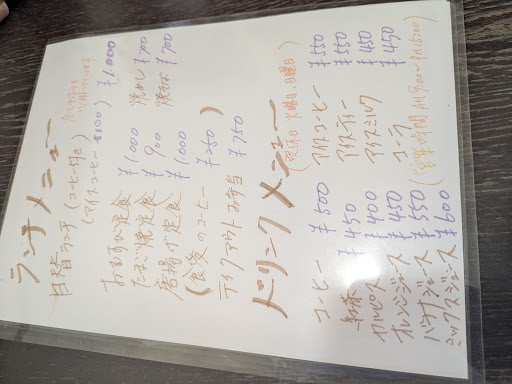 ランチメニュー
日替ランチ (コーヒー付き) ¥1,000
(アイスコーヒー ¥100)
おむすび定食 ¥1,000 焼めし ¥700
たまご焼定食 ¥900 焼そば ¥700
唐揚げ定食 ¥1,000
(食後のコーヒー ¥250)
テイクアウトお弁当 ¥750
ドリンクメニュー
(定休日 火曜日、日曜日)
コーヒー ¥500 アイスコーヒー ¥550
紅茶 ¥450 アイスティー ¥550
カルピス ¥400 アイスミルク ¥450
オレンジジュース ¥450 コーラ ¥450
バナナジュース ¥550
ミックスジュース ¥600
(営業時間 AM 9:00〜PM 5:00)